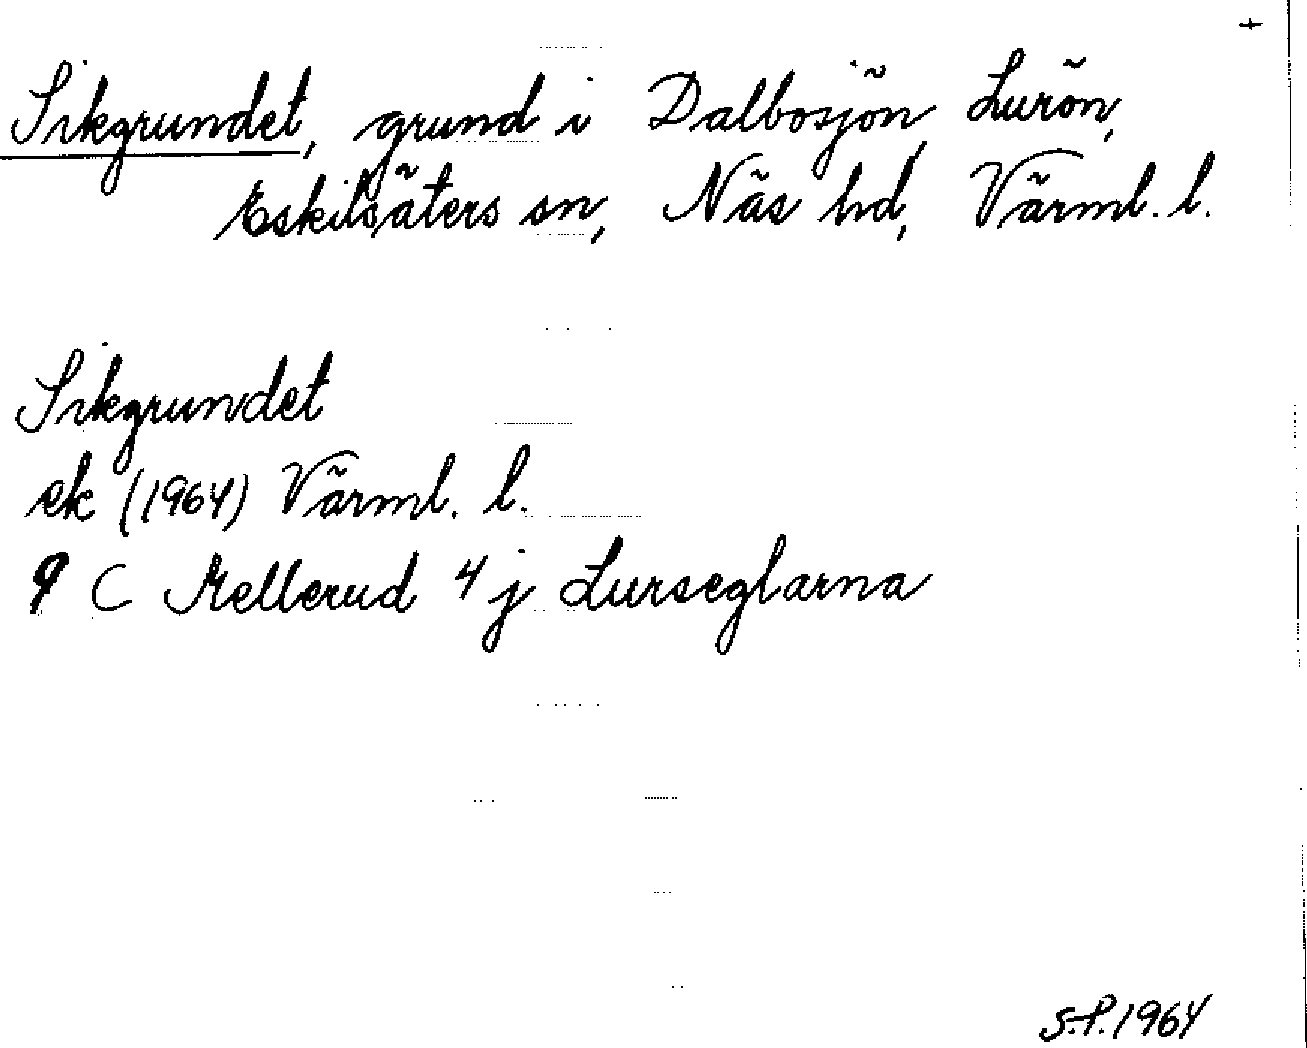 +
Sikgrundet, grund i Dalbosjön, Lurön,
Eskilsäters sn, Näs hd, Värml. l.
Sikgrundet
ek (1964) Värml. l.
9 C Mellerud 4 j Lurseglarna
S.P. 1964